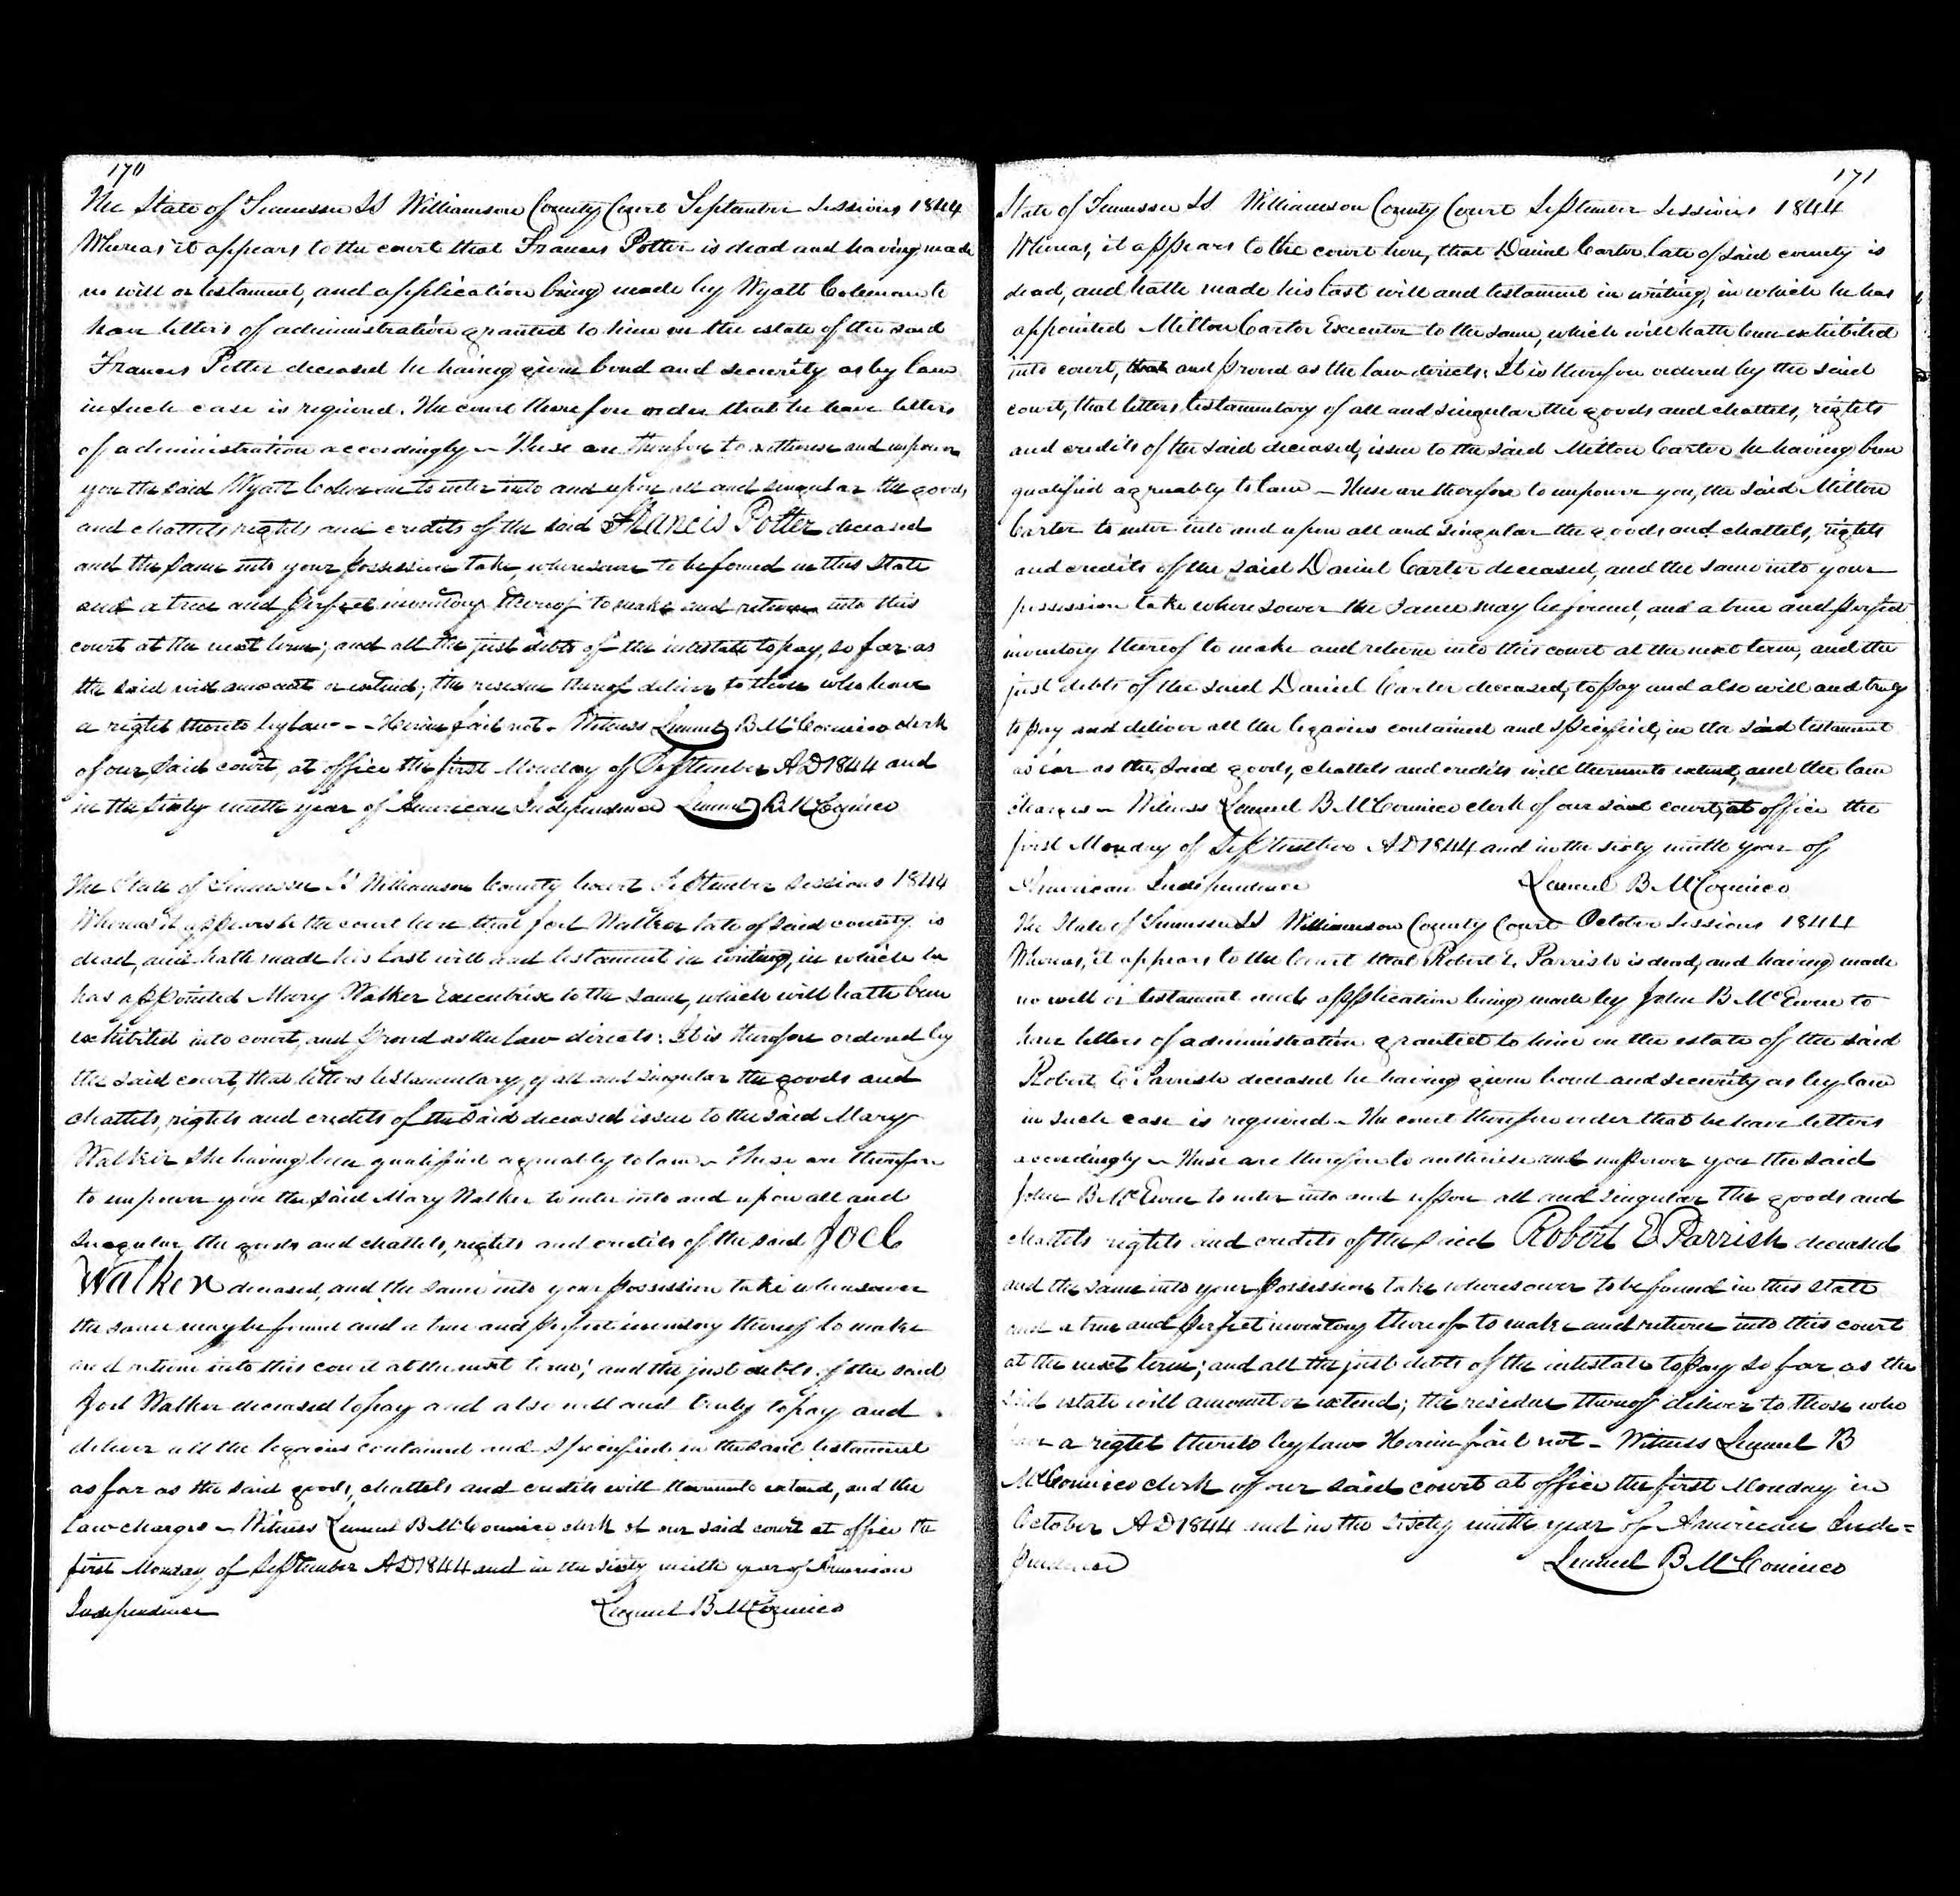 170
The State of Tennessee SS Williamson County Court September Sessions 1844
Whereas it appears to the court that Francis Potter is dead and having made
no will or testament, and application being made by Wyatt Coleman to
have letters of administration granted to him on the estate of the said
Francis Potter deceased he having given bond and security as by law
in such case is required. The court therefore order that he have letters
of administration accordingly – These are therefore to authorise and impower
you the said Wyatt Coleman to enter into and upon all and singular the goods
and chattels rights and credits of the said Francis Potter deceased
and the same into your possession take, wheresoever to be found in this State
and a true and perfect inventory thereof to make and return into this
court at the next term; and all the just debts of the intestate to pay, so far as
the said will amount or extend; the residue thereof deliver to those who have
a right thereto by law – Herein fail not – Witness Lemuel B McConnico clerk
of our said court, at office the first Monday of September AD 1844 and
in the sixty ninth year of American Independence Lemuel B McConnico
The State of Tennessee SS Williamson County Court September Sessions 1844
Whereas it appears to the court here that Joel Walker late of said county is
dead, and hath made his last will and testament in writing, in which he
has appointed Mary Walker Executrix to the same, which will hath been
exhibited into court, and proved as the law directs: It is therefore ordered by
the said court, that letters testamentary, of all and singular the goods and
chattels, rights and credits of the said deceased issue to the said Mary
Walker she having been qualified agreeably to law – These are therefore
to impower you the said Mary Walker to enter into and upon all and
singular the goods and chattels, rights and credits of the said Joel
Walker deceased, and the same into your possession take wheresoever
the same may be found and a true and perfect inventory thereof to make
and return into this court at the next term; and the just debts of the said
Joel Walker deceased to pay and also well and truly to pay and
deliver all the legacies contained and specified in the said testament
as far as the said goods, chattels and credits will thereunto extend, and the
law charges – Witness Lemuel B McConnico clerk of our said court at office the
first Monday of September AD 1844 and in the sixty ninth year of American
Independence Lemuel B McConnico
171
State of Tennessee SS Williamson County Court September Sessions 1844
Whereas, it appears to the court here, that Daniel Carter late of said county is
dead, and hath made his last will and testament in writing, in which he has
appointed Milton Carter Executor to the same, which will hath been exhibited
into court, and proved as the law directs: It is therefore ordered by the said
court, that letters testamentary of all and singular the goods and chattels, rights
and credits of the said deceased, issue to the said Milton Carter he having been
qualified agreeably to law – These are therefore to impower you, the said Milton
Carter to enter into and upon all and singular the goods and chattels, rights
and credits of the said Daniel Carter deceased, and the same into your
possession take wheresoever the same may be found, and a true and perfect
inventory thereof to make and return into this court at the next term, and the
just debts of the said Daniel Carter deceased, to pay and also well and truly
to pay and deliver all the legacies contained and specified, in the said testament
as far as the said goods, chattels and credits will thereunto extend, and the law
charges – Witness Lemuel B McConnico clerk of our said court, at office the
first Monday of September AD 1844 and in the sixty ninth year of
American Independence Lemuel B McConnico
The State of Tennessee SS Williamson County Court October Sessions 1844
Whereas, it appears to the Court that Robert E Parrish is dead, and having made
no will or testament and application being made by John B McEwen to
have letters of administration granted to him on the estate of the said
Robert E Parrish deceased he having given bond and security as by law
in such case is required – The court therefore order that he have letters
accordingly – These are therefore to authorise and impower you the said
John B McEwen to enter into and upon all and singular the goods and
chattels rights and credits of the said Robert E Parrish deceased
and the same into your possession take wheresoever to be found in this state
and a true and perfect inventory thereof to make and return into this court
at the next term; and all the just debts of the intestate to pay so far as the
said estate will amount or extend; the residue thereof deliver to those who
have a right thereto by law Herein fail not – Witness Lemuel B
McConnico clerk of our said court at office the first Monday in
October AD 1844 and in the sixty ninth year of American Inde=
pendence Lemuel B McConnico